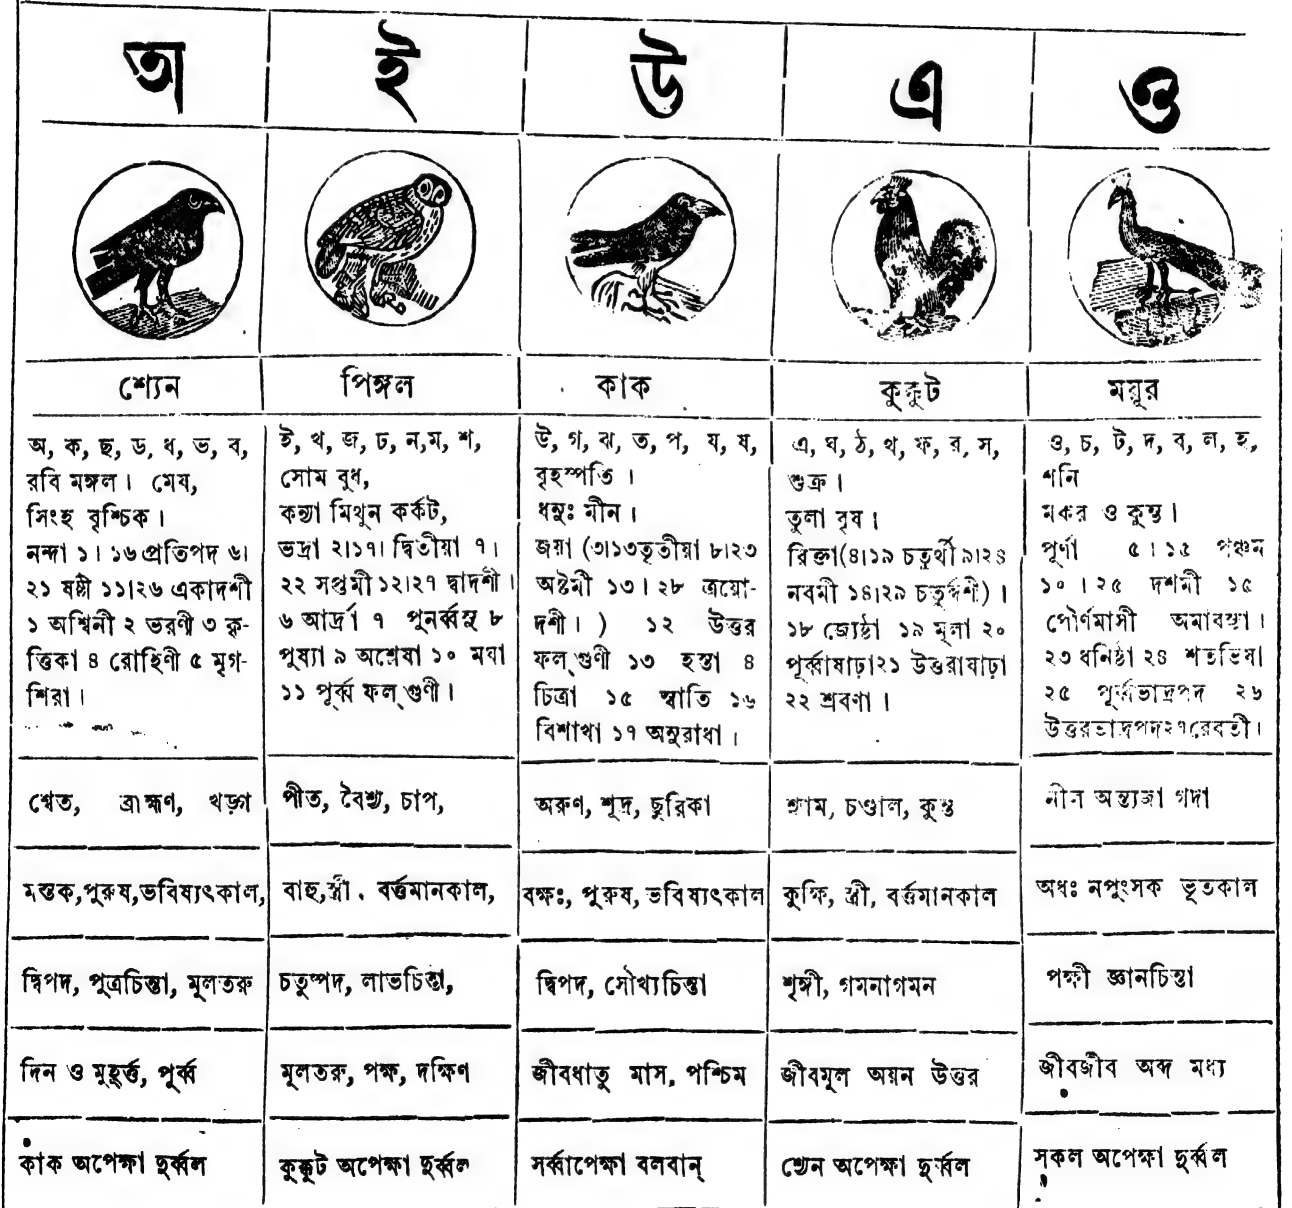 অ
ই
উ
এ
ও
শ্যেন
পিঙ্গল
কাক
কুক্কুট
ময়ূর
অ, ক, ছ, ড, ধ, ভ, ব,
রবি মঙ্গল। মেষ,
সিংহ বৃশ্চিক।
নন্দা ১। ১৬ প্রতিপদ ৬।
২১ ষষ্ঠী ১১।২৬ একাদশী
১ অশ্বিনী ২ ভরণী ৩ কৃ-
ত্তিকা ৪ রোহিণী ৫ মৃগ-
শিরা।
ই, খ, জ, ঢ, ন, ম, শ,
সোম বুধ,
কন্যা মিথুন কর্কট,
ভদ্রা ২।১৭। দ্বিতীয়া ৭।
২২ সপ্তমী ১২।২৭ দ্বাদশী।
৬ আর্দ্রা ৭ পুনর্ব্বসু ৮
পুষ্যা ৯ অশ্লেষা ১০ মঘা
১১ পূর্ব্ব ফল্গুণী।
উ, গ, ঝ, ত, প, য, ষ,
বৃহস্পতি।
ধনুঃ মীন।
জয়া (৩।১৩ তৃতীয়া ৮।২৩
অষ্টমী ১৩।২৮ ত্রয়ো-
দশী। ) ১২ উত্তর
ফল্গুণী ১৩ হস্তা ৪
চিত্রা ১৫ স্বাতি ১৬
বিশাখা ১৭ অনুরাধা।
এ, ঘ, ঠ, থ, ফ, র, স,
শুক্র।
তুলা বৃষ।
রিক্তা (৪।১৯ চতুর্থী ৯।২৪
নবমী ১৪।২৯ চতুর্দ্দশী)।
১৮ জ্যেষ্ঠা ১৯ মূলা ২০
পূর্ব্বাষাঢ়া ২১ উত্তরাষাঢ়া
২২ শ্রবণা।
ও, চ, ট, দ, ব, ল, হ,
শনি
মকর ও কুম্ভ।
পূর্ণা ৫।১৫ পঞ্চম
১০।২৫ দশমী ১৫
পৌর্ণমাসী অমাবস্যা।
২৩ ধনিষ্ঠা ২৪ শতভিষা
২৫ পূর্ব্বভাদ্রপদ ২৬
উত্তরভাদ্রপদ ২৭ রেবতী।
শ্বেত, ব্রাহ্মণ, খড়্গ
পীত, বৈশ্য, চাপ,
অরুণ, শূদ্র, ছুরিকা
শ্যাম, চণ্ডাল, কুন্ত
নীল অন্ত্যজা গদা
মস্তক, পুরুষ, ভবিষ্যৎকাল,
বাহু, স্ত্রী, বর্ত্তমানকাল,
বক্ষঃ, পুরুষ, ভবিষ্যৎকাল
কুক্ষি, স্ত্রী, বর্ত্তমানকাল
অধঃ নপুংসক ভূতকাল
দ্বিপদ, পুত্রচিন্তা, মূলতরু
চতুষ্পদ, লাভচিন্তা,
দ্বিপদ, সৌখ্যচিন্তা
শৃঙ্গী, গমনাগমন
পক্ষী জ্ঞানচিন্তা
দিন ও মুহূর্ত্ত, পূর্ব্ব
মূলতরু, পক্ষ, দক্ষিণ
জীবধাতু মাস, পশ্চিম
জীবমূল অয়ন উত্তর
জীবজীব অব্দ মধ্য
কাক অপেক্ষা দুর্ব্বল
কুক্কুট অপেক্ষা দুর্ব্বল
সর্ব্বাপেক্ষা বলবান্
শ্যেন অপেক্ষা দুর্ব্বল
সকল অপেক্ষা দুর্ব্বল